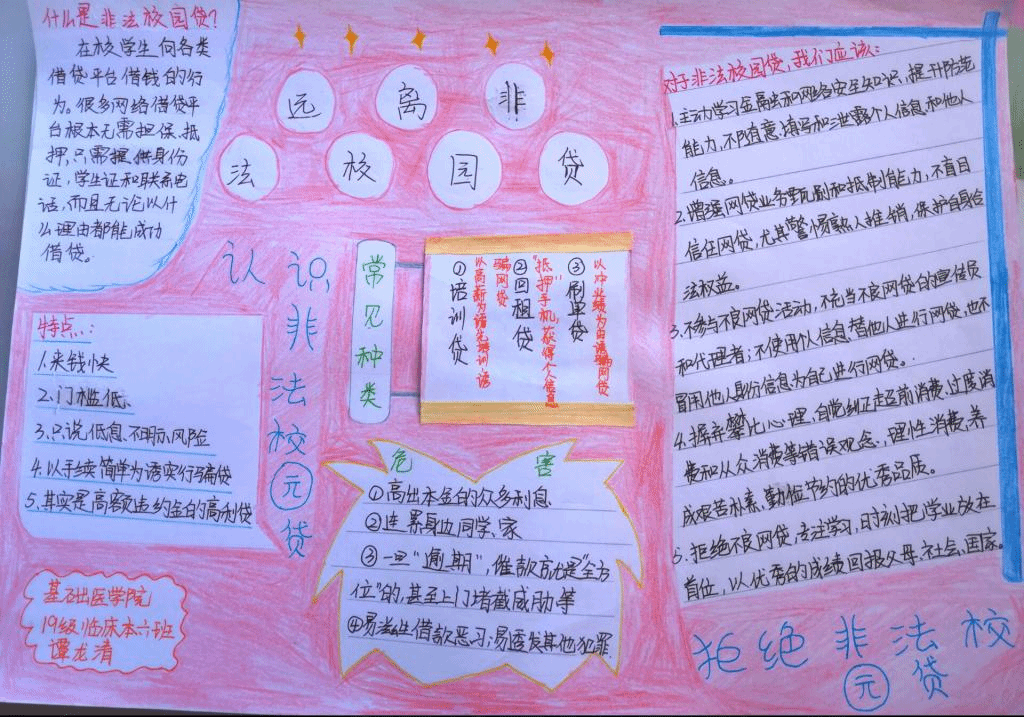 什么是非法校园贷?
在校学生向各类
借贷平台借钱的行
为。很多网络借贷平
台根本无需担保、抵
押,只需提供身份
证,学生证和联系电
话,而且无论以什
么理由都能成功
借贷。
远离非
法校园贷
认识非法校园贷
特点:
1.来钱快
2.门槛低、
3.只说低息、不明示风险
4.以手续简单为诱实行骗贷
5.其实是高额违约金的高利贷
基础医学院
19级临床本六班
谭龙清
常见种类
①培训贷
以高薪为诱先培训 诱
骗网贷
②回租贷
"抵押"手机,获得个人信息
③刷单贷
以冲业绩为由诱骗网贷
危害
①高出本金的众多利息
②连累身边同学、家
③一旦"逾期",催款方就是"全方
位"的,甚至上门堵截威胁等
④易滋生借款恶习;易诱发其他犯罪.
对于非法校园贷,我们应该:
1.主动学习金融和网络安全知识,提升防范
能力,不随意填写和泄露个人信息和他人
信息。
2.增强网贷业务甄别和抵制能力,不盲目
信任网贷,尤其警惕熟人推销,保护自身合
法权益。
3.不参与不良网贷活动,不充当不良网贷的宣传员
和代理者;不使用个人信息替他人进行网贷,也不
冒用他人身份信息为自己进行网贷。
4.摒弃攀比心理,自觉纠正超前消费、过度消
费和从众消费等错误观念、理性消费、养
成艰苦朴素、勤俭节约的优秀品质。
5.拒绝不良网贷,专注学习,时刻把学业放在
首位,以优秀的成绩回报父母、社会、国家。
拒绝非法校
园贷